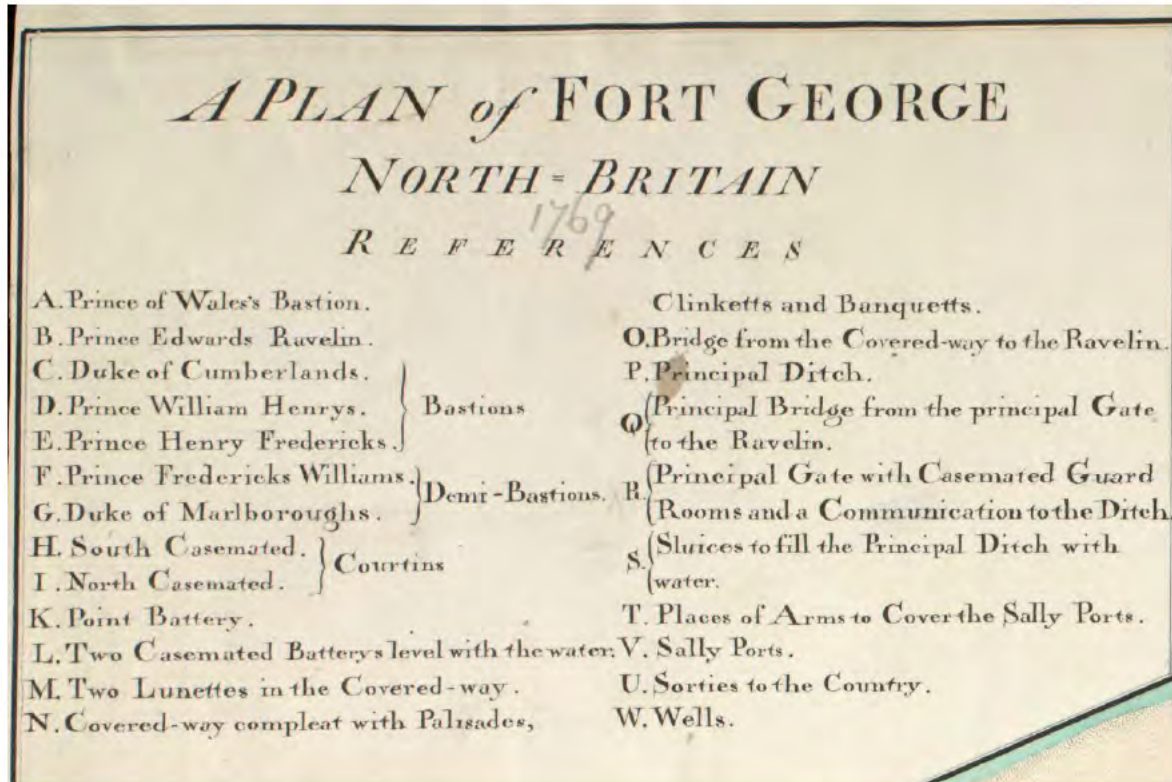 A PLAN of FORT GEORGE
NORTH=BRITAIN
1769
REFERENCES
A. Prince of Wales's Bastion.
B. Prince Edwards Ravelin.
C. Duke of Cumberlands.
D. Prince William Henrys.
E. Prince Henry Fredericks.
Bastions
F. Prince Fredericks Williams.
G. Duke of Marlboroughs.
Demi-Bastions.
H. South Casemated.
I. North Casemated.
Courtins
K. Point Battery.
L. Two Casemated Batterys level with the water.
M. Two Lunettes in the Covered-way.
N. Covered-way compleat with Palisades,
Clinketts and Banquetts.
O. Bridge from the Covered-way to the Ravelin.
P. Principal Ditch.
Q. Principal Bridge from the principal Gate
to the Ravelin.
R. Principal Gate with Casemated Guard
Rooms and a Communication to the Ditch
S. Sluices to fill the Principal Ditch with
water.
T. Places of Arms to Cover the Sally Ports.
V. Sally Ports.
U. Sorties to the Country.
W. Wells.